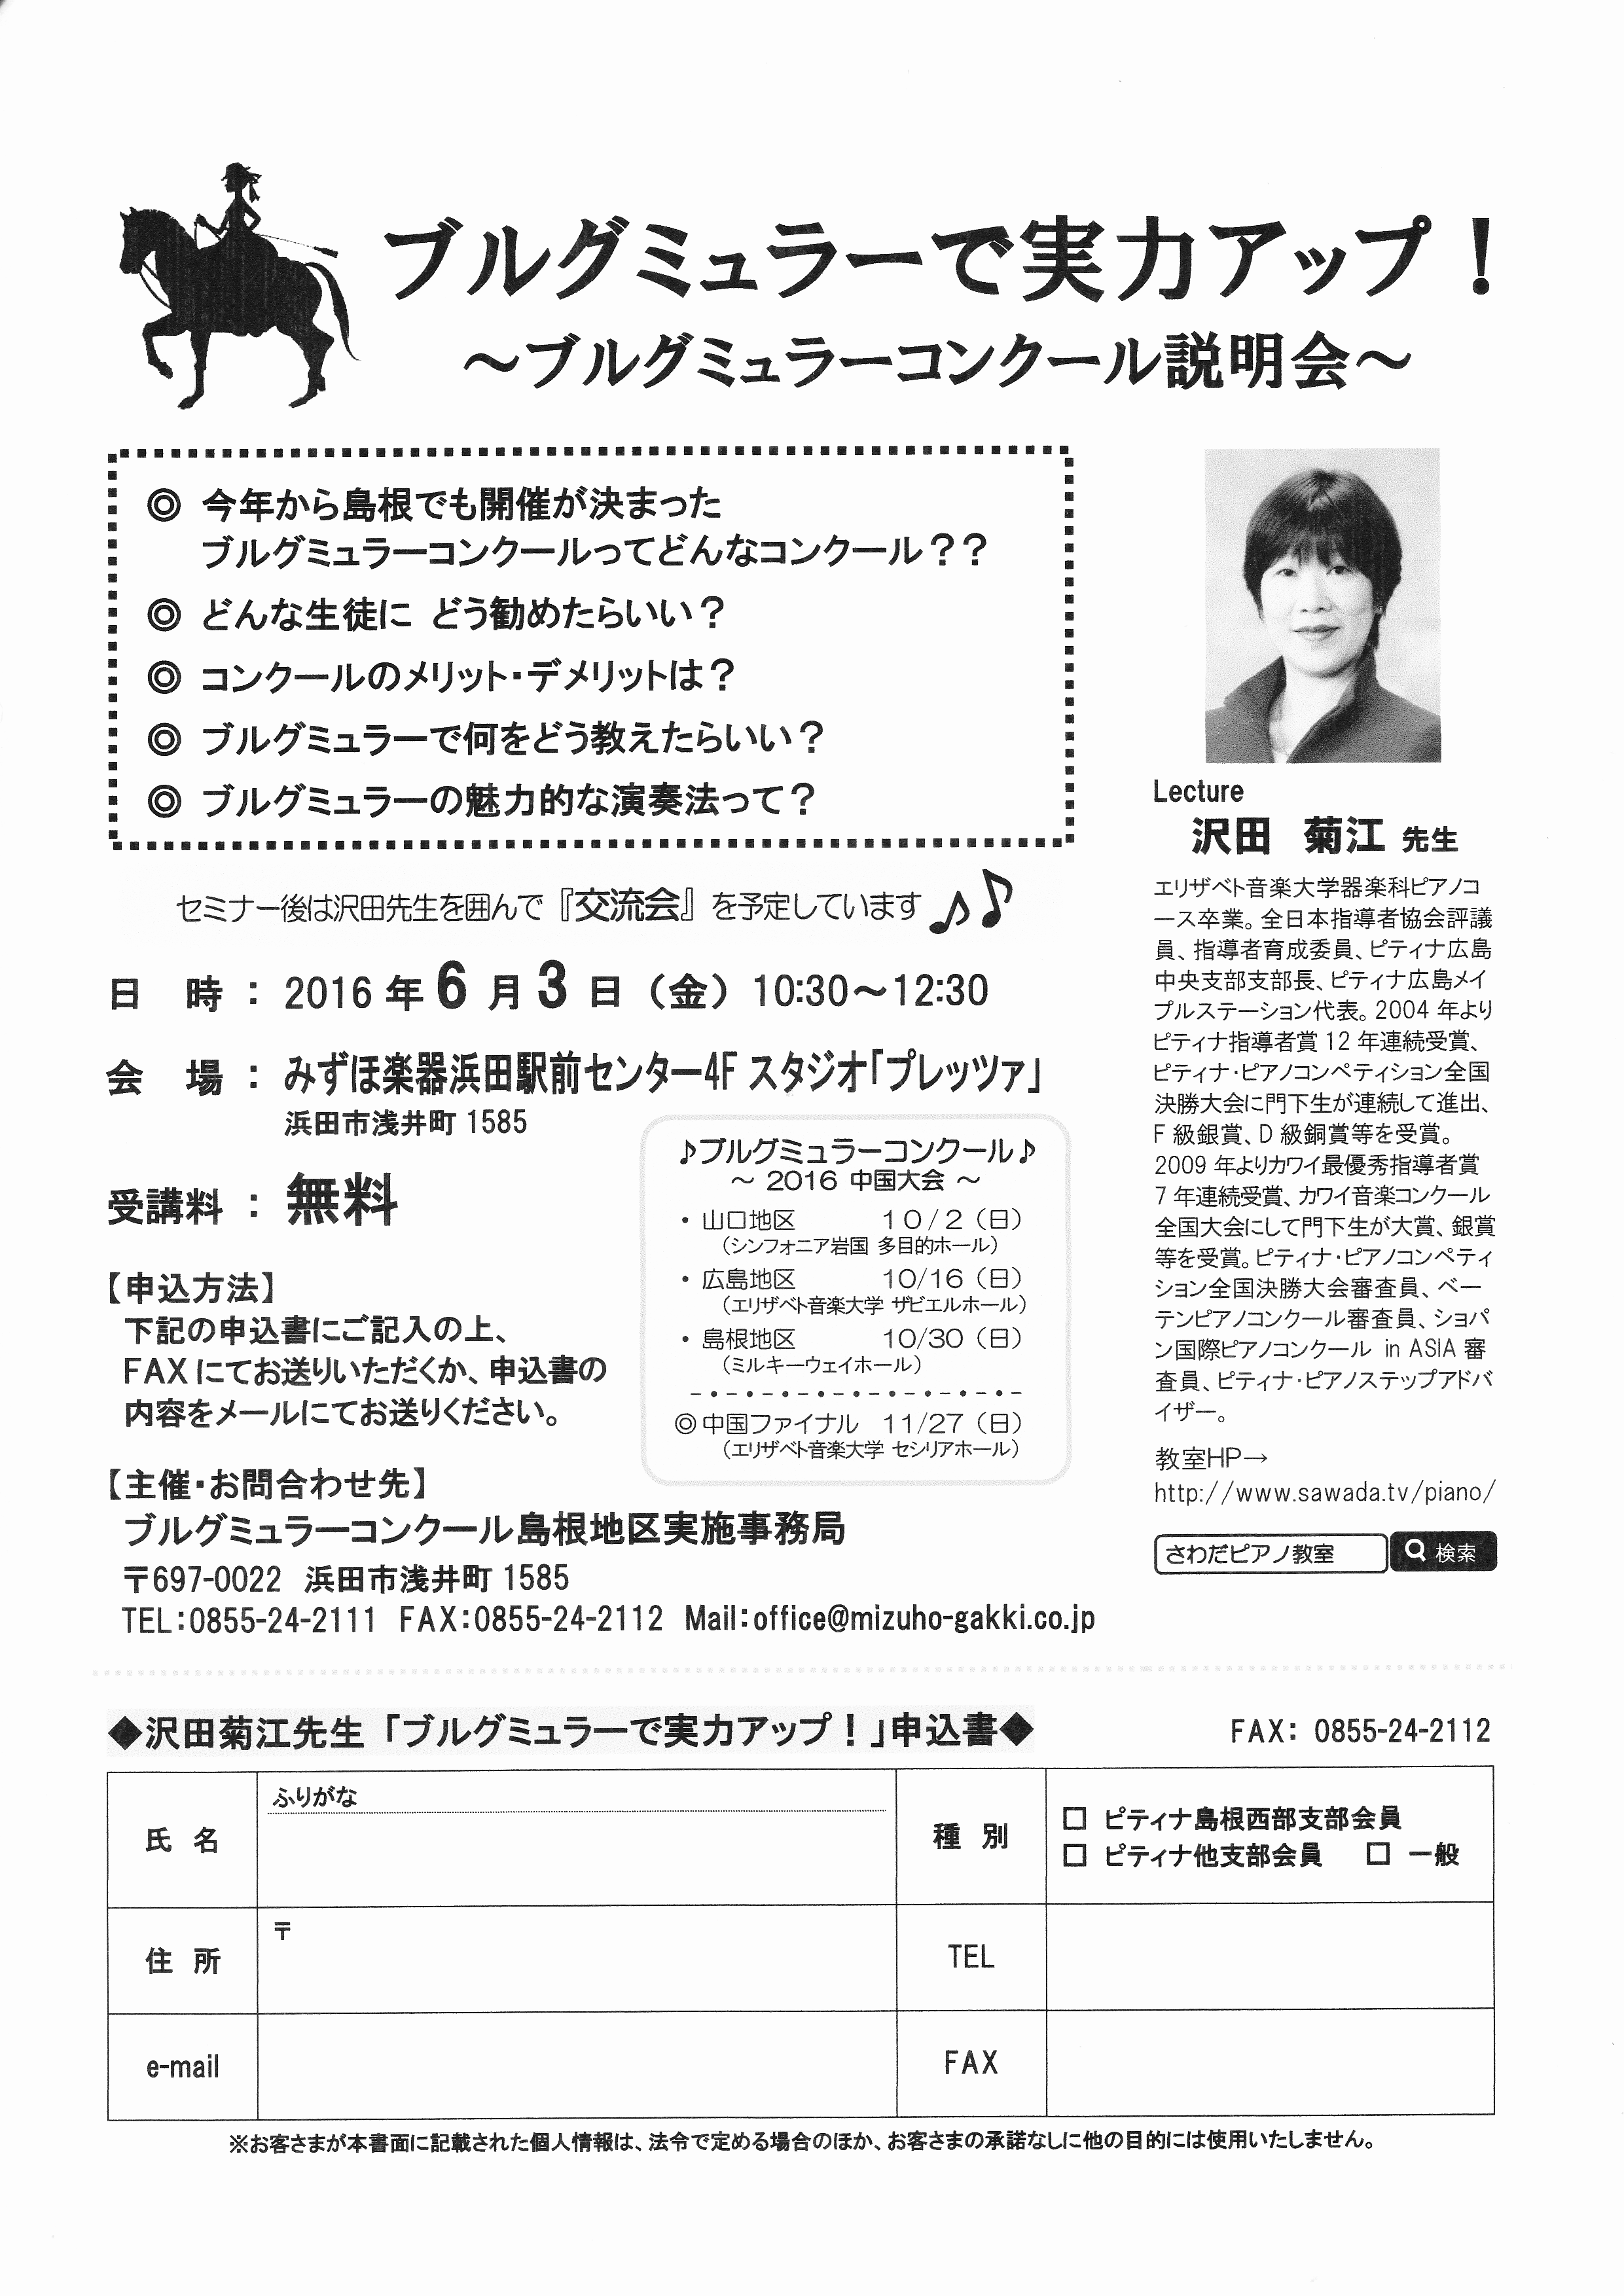 ブルグミュラーで実力アップ！
～ブルグミュラーコンクール説明会～
◎ 今年から島根でも開催が決まった
ブルグミュラーコンクールってどんなコンクール？？
◎ どんな生徒に どう勧めたらいい？
◎ コンクールのメリット・デメリットは？
◎ ブルグミュラーで何をどう教えたらいい？
◎ ブルグミュラーの魅力的な演奏法って？
セミナー後は沢田先生を囲んで『交流会』を予定しています♪♪
日 時 ： 2016 年 6 月 3 日（金）10:30～12:30
会 場 ： みずほ楽器浜田駅前センター4F スタジオ「プレッツァ」
浜田市浅井町 1585
受講料 ： 無料
【申込方法】
下記の申込書にご記入の上、
FAX にてお送りいただくか、申込書の
内容をメールにてお送りください。
♪ブルグミュラーコンクール♪
～ 2016 中国大会 ～
・ 山口地区 10/2（日）
（シンフォニア岩国 多目的ホール）
・ 広島地区 10/16（日）
（エリザベト音楽大学 ザビエルホール）
・ 島根地区 10/30（日）
（ミルキーウェイホール）
◎中国ファイナル 11/27（日）
（エリザベト音楽大学 セシリアホール）
【主催・お問合わせ先】
ブルグミュラーコンクール島根地区実施事務局
〒697-0022 浜田市浅井町 1585
TEL：0855-24-2111 FAX：0855-24-2112 Mail：office@mizuho-gakki.co.jp
Lecture
沢田 菊江 先生
エリザベト音楽大学器楽科ピアノコ
ース卒業。全日本指導者協会評議
員、指導者育成委員、ピティナ広島
中央支部支部長、ピティナ広島メイ
プルステーション代表。2004 年より
ピティナ指導者賞 12 年連続受賞、
ピティナ・ピアノコンペティション全国
決勝大会に門下生が連続して進出、
F 級銀賞、D 級銅賞等を受賞。
2009 年よりカワイ最優秀指導者賞
7 年連続受賞、カワイ音楽コンクール
全国大会にして門下生が大賞、銀賞
等を受賞。ピティナ・ピアノコンペティ
ション全国決勝大会審査員、ベー
テンピアノコンクール審査員、ショパ
ン国際ピアノコンクール in ASIA 審
査員、ピティナ・ピアノステップアドバ
イザー。
教室HP→
http://www.sawada.tv/piano/
さわだピアノ教室 検索
◆沢田菊江先生「ブルグミュラーで実力アップ！」申込書◆ FAX： 0855-24-2112
氏 名 ふりがな
種 別 □ ピティナ島根西部支部会員
□ ピティナ他支部会員 □ 一般
住 所 〒 TEL
e-mail FAX
※お客さまが本書面に記載された個人情報は、法令で定める場合のほか、お客さまの承諾なしに他の目的には使用いたしません。